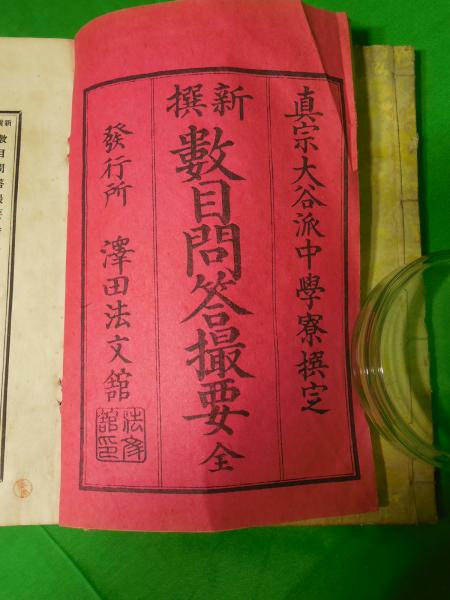 真宗大谷派中學寮撰定
新撰
數目問答撮要 全
發行所 澤田法文舘
新撰數目問答撮要